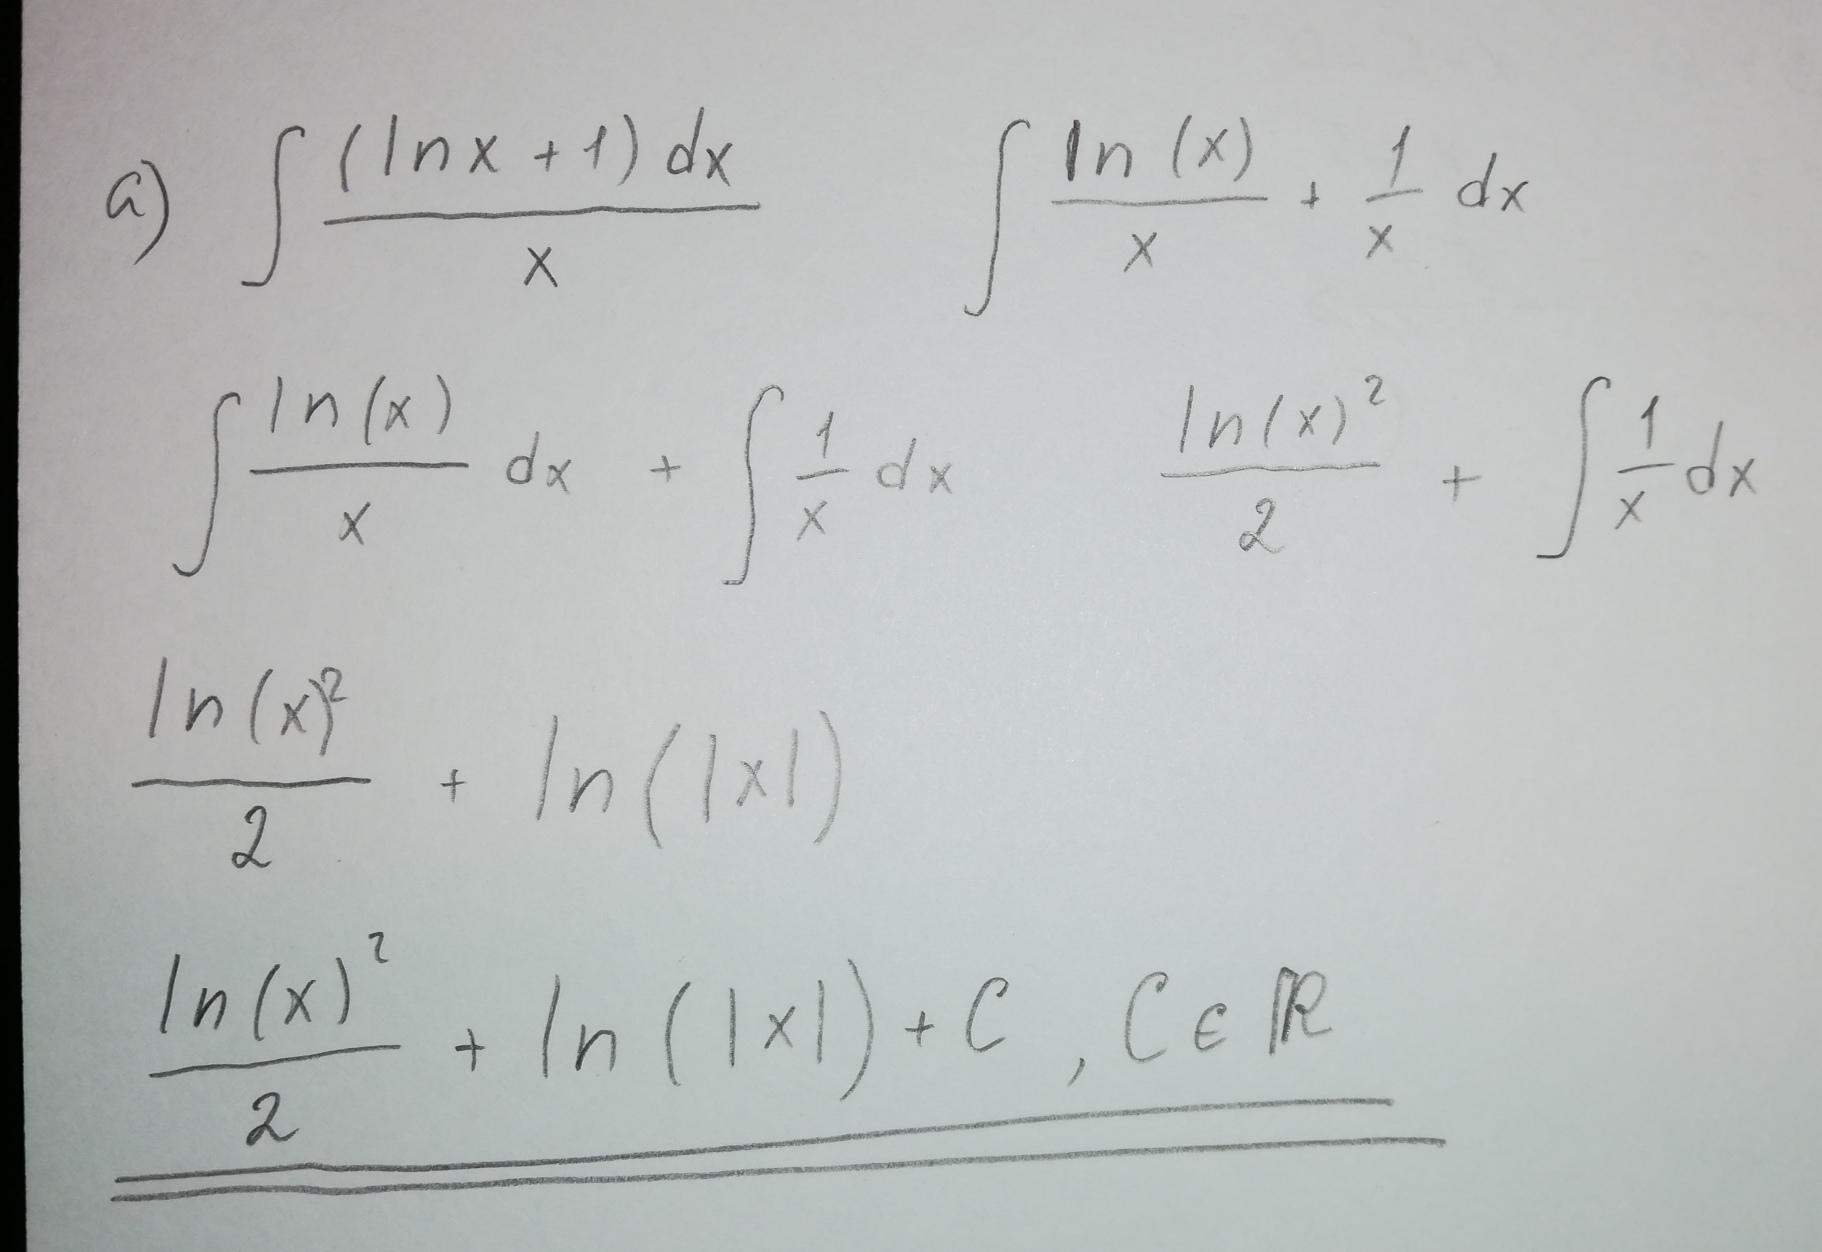 a) ∫ (lnx + 1) dx / x    ∫ ln(x)/x + 1/x dx
∫ ln(x)/x dx + ∫ 1/x dx    ln(x)²/2 + ∫ 1/x dx
ln(x)²/2 + ln(|x|)
ln(x)²/2 + ln(|x|) + C , C ∈ ℝ